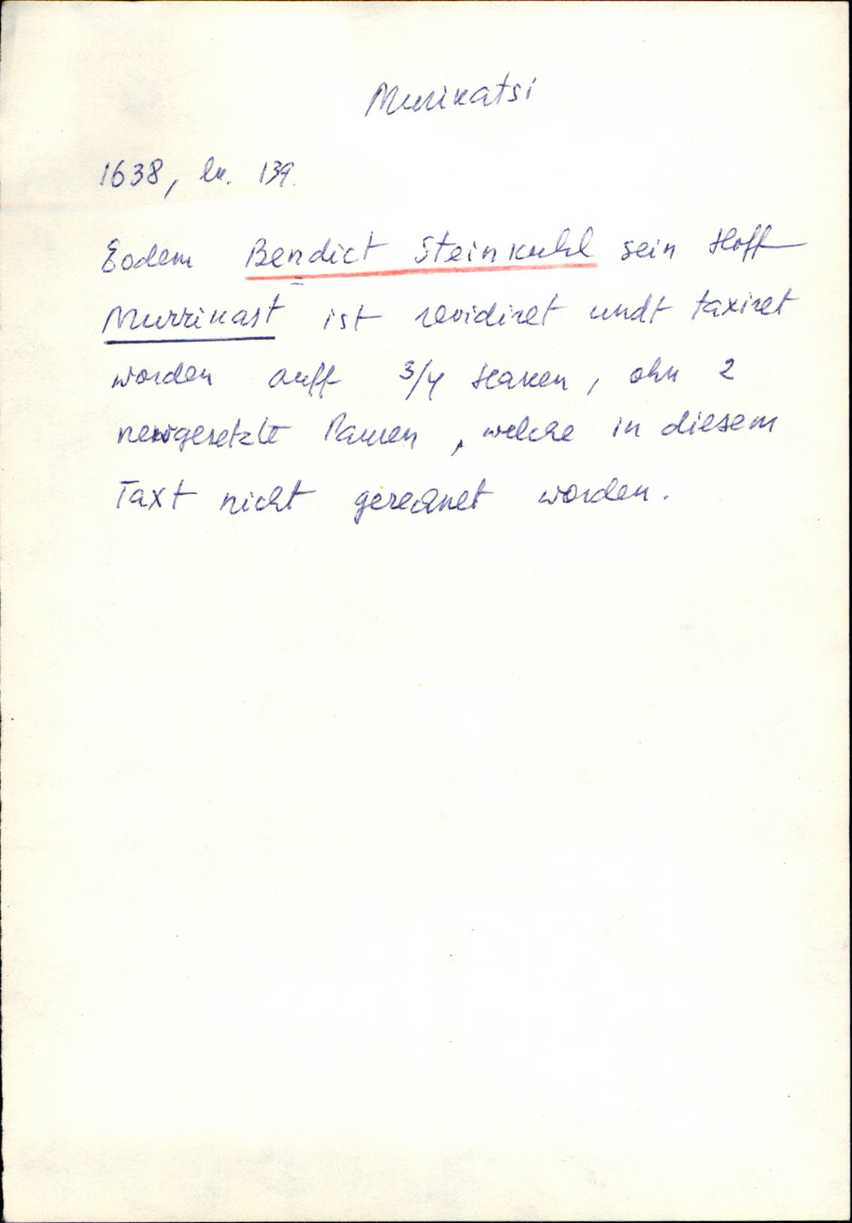 Murikatsi
1638, lk. 139.
Eodem Bendict Steinkuhl sein Hoff
Murrikast ist revidiret undt taxiret
worden auff 3/4 Haken, ohn 2
newgesetzte Pauren, welche in diesem
Taxt nicht gerechnet worden.